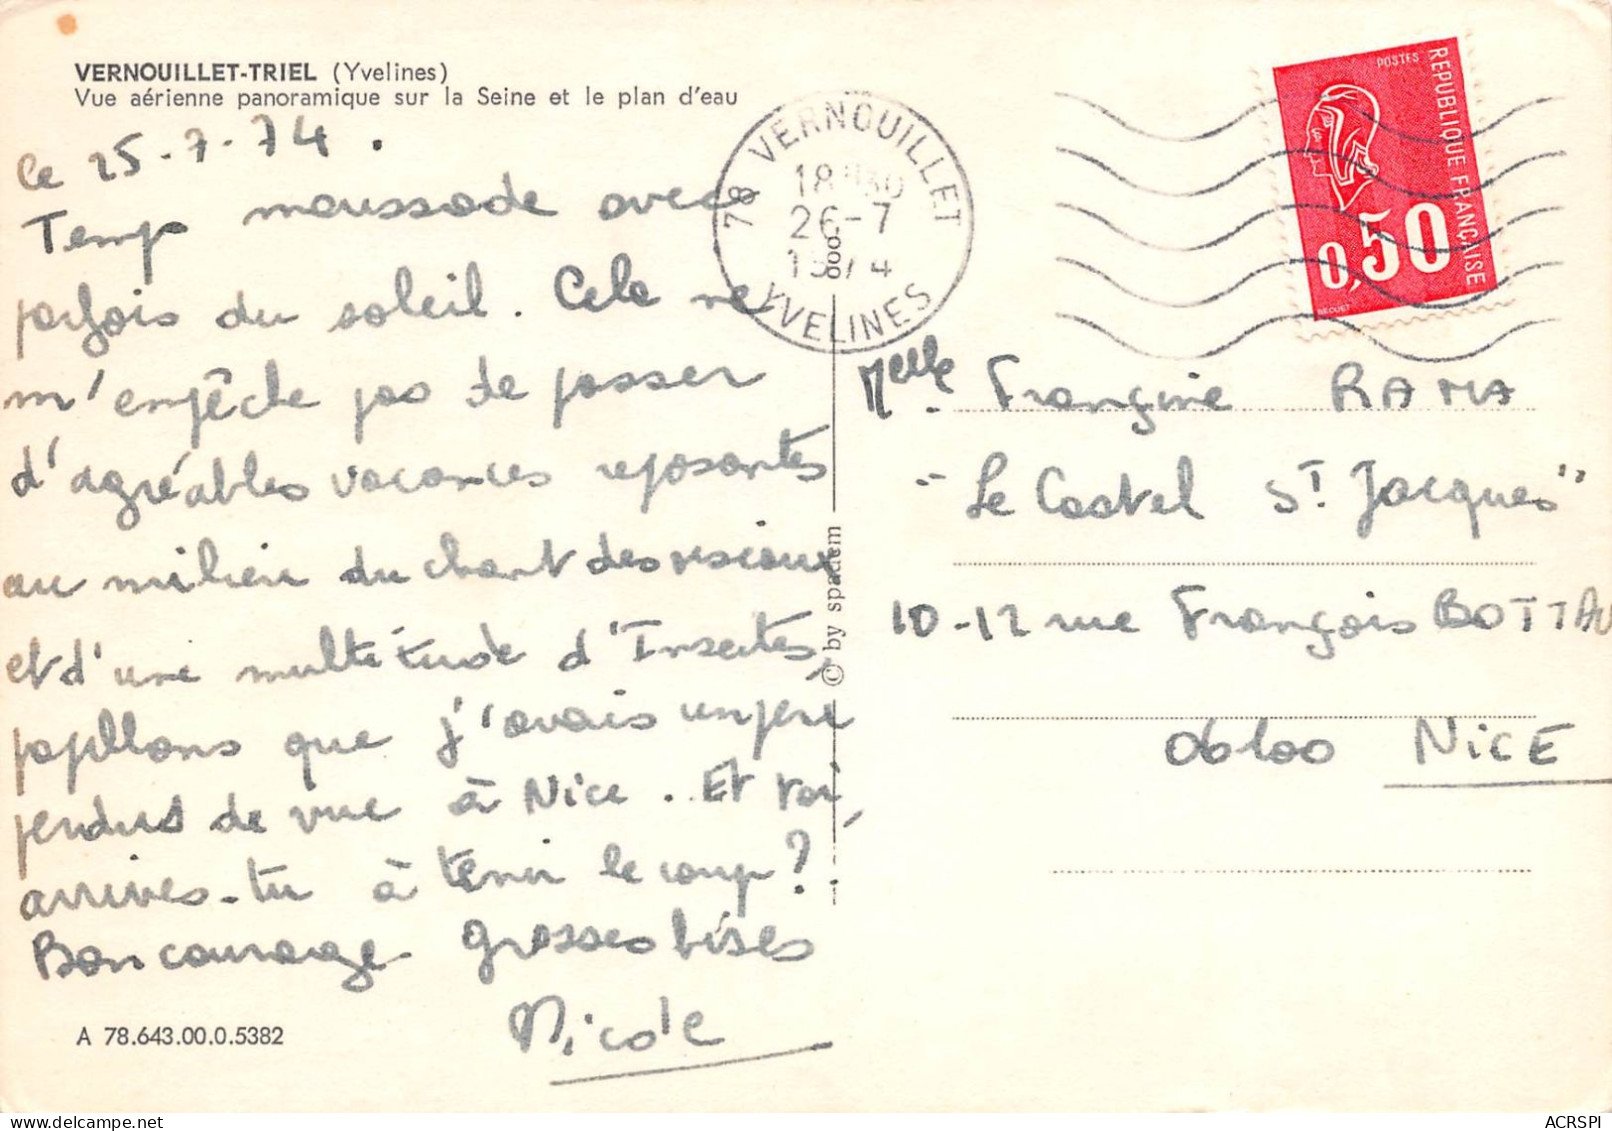 VERNOUILLET-TRIEL (Yvelines)
Vue aérienne panoramique sur la Seine et le plan d'eau
le 25-7-74.
Temps moussade avec
parfois du soleil. Cela ne
m'empêche pas de passer
d'agréables vacances reposantes
au milieu du chant des oiseaux
et d'une multitude d'Insectes,
papillons que j'avais un peu
perdus de vue à Nice. Et toi,
arrives-tu à tenir le coup?
Bon courage Grosses bises
Nicole
A 78.643.00.0.5382
© by spadem
78 VERNOUILLET
18H30
26-7
1974
YVELINES
POSTES
REPUBLIQUE FRANÇAISE
0,50
BEQUET
Melle Françine RAMA
"Le Castel St Jacques"
10-12 rue François BOTTAU
06100 NICE
ACRSPI